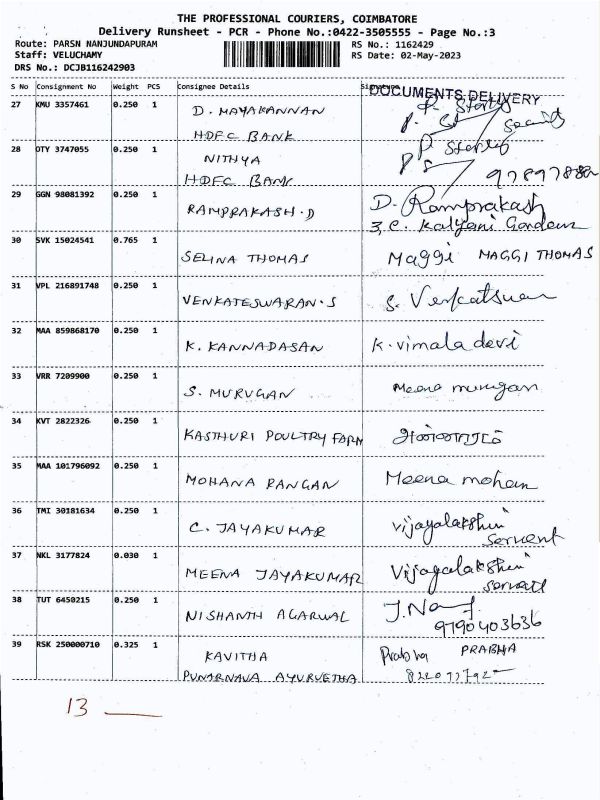 THE PROFESSIONAL COURIERS, COIMBATORE
Delivery Runsheet - PCR - Phone No.:0422-3505555 - Page No.:3
Route: PARSN NANJUNDAPURAM
RS No.: 1162429
Staff: VELUCHAMY
RS Date: 02-May-2023
DRS No.: DCJB116242903
S No Consignment No Weight PCS Consignee Details Signature
DOCUMENTS DELIVERY
27 KMU 3357461 0.250 1 D. MAYAKANNAN
HDFC BANK
Security
28 OTY 3747055 0.250 1 NITHYA
HDFC BANK
29 GGN 98081392 0.250 1 RAMPRAKASH.D D. Ramprakash
3, C. Kalyani Gardens
30 SVK 15024541 0.765 1 SELINA THOMAS Maggi MAGGI THOMAS
31 VPL 216891748 0.250 1 VENKATESWARAN.S S. Venkatsuan
32 MAA 859868170 0.250 1 K. KANNADASAN K. vimala devi
33 VRR 7209900 0.250 1 S. MURUGAN Meena murugan
34 KVT 2822326 0.250 1 KASTHURI POULTRY FARM
35 MAA 101796092 0.250 1 MOHANA RANGAN Meena mohan
36 TMI 30181634 0.250 1 C. JAYAKUMAR vijayalakshmi
Servent
37 NKL 3177824 0.030 1 MEENA JAYAKUMAR Vijayalakshmi
38 TUT 6450215 0.250 1 NISHANTH AGARWAL
9790403636
39 RSK 250000710 0.325 1 KAVITHA Prabha PRABHA
PUNARNAVA AYURVETHA
13